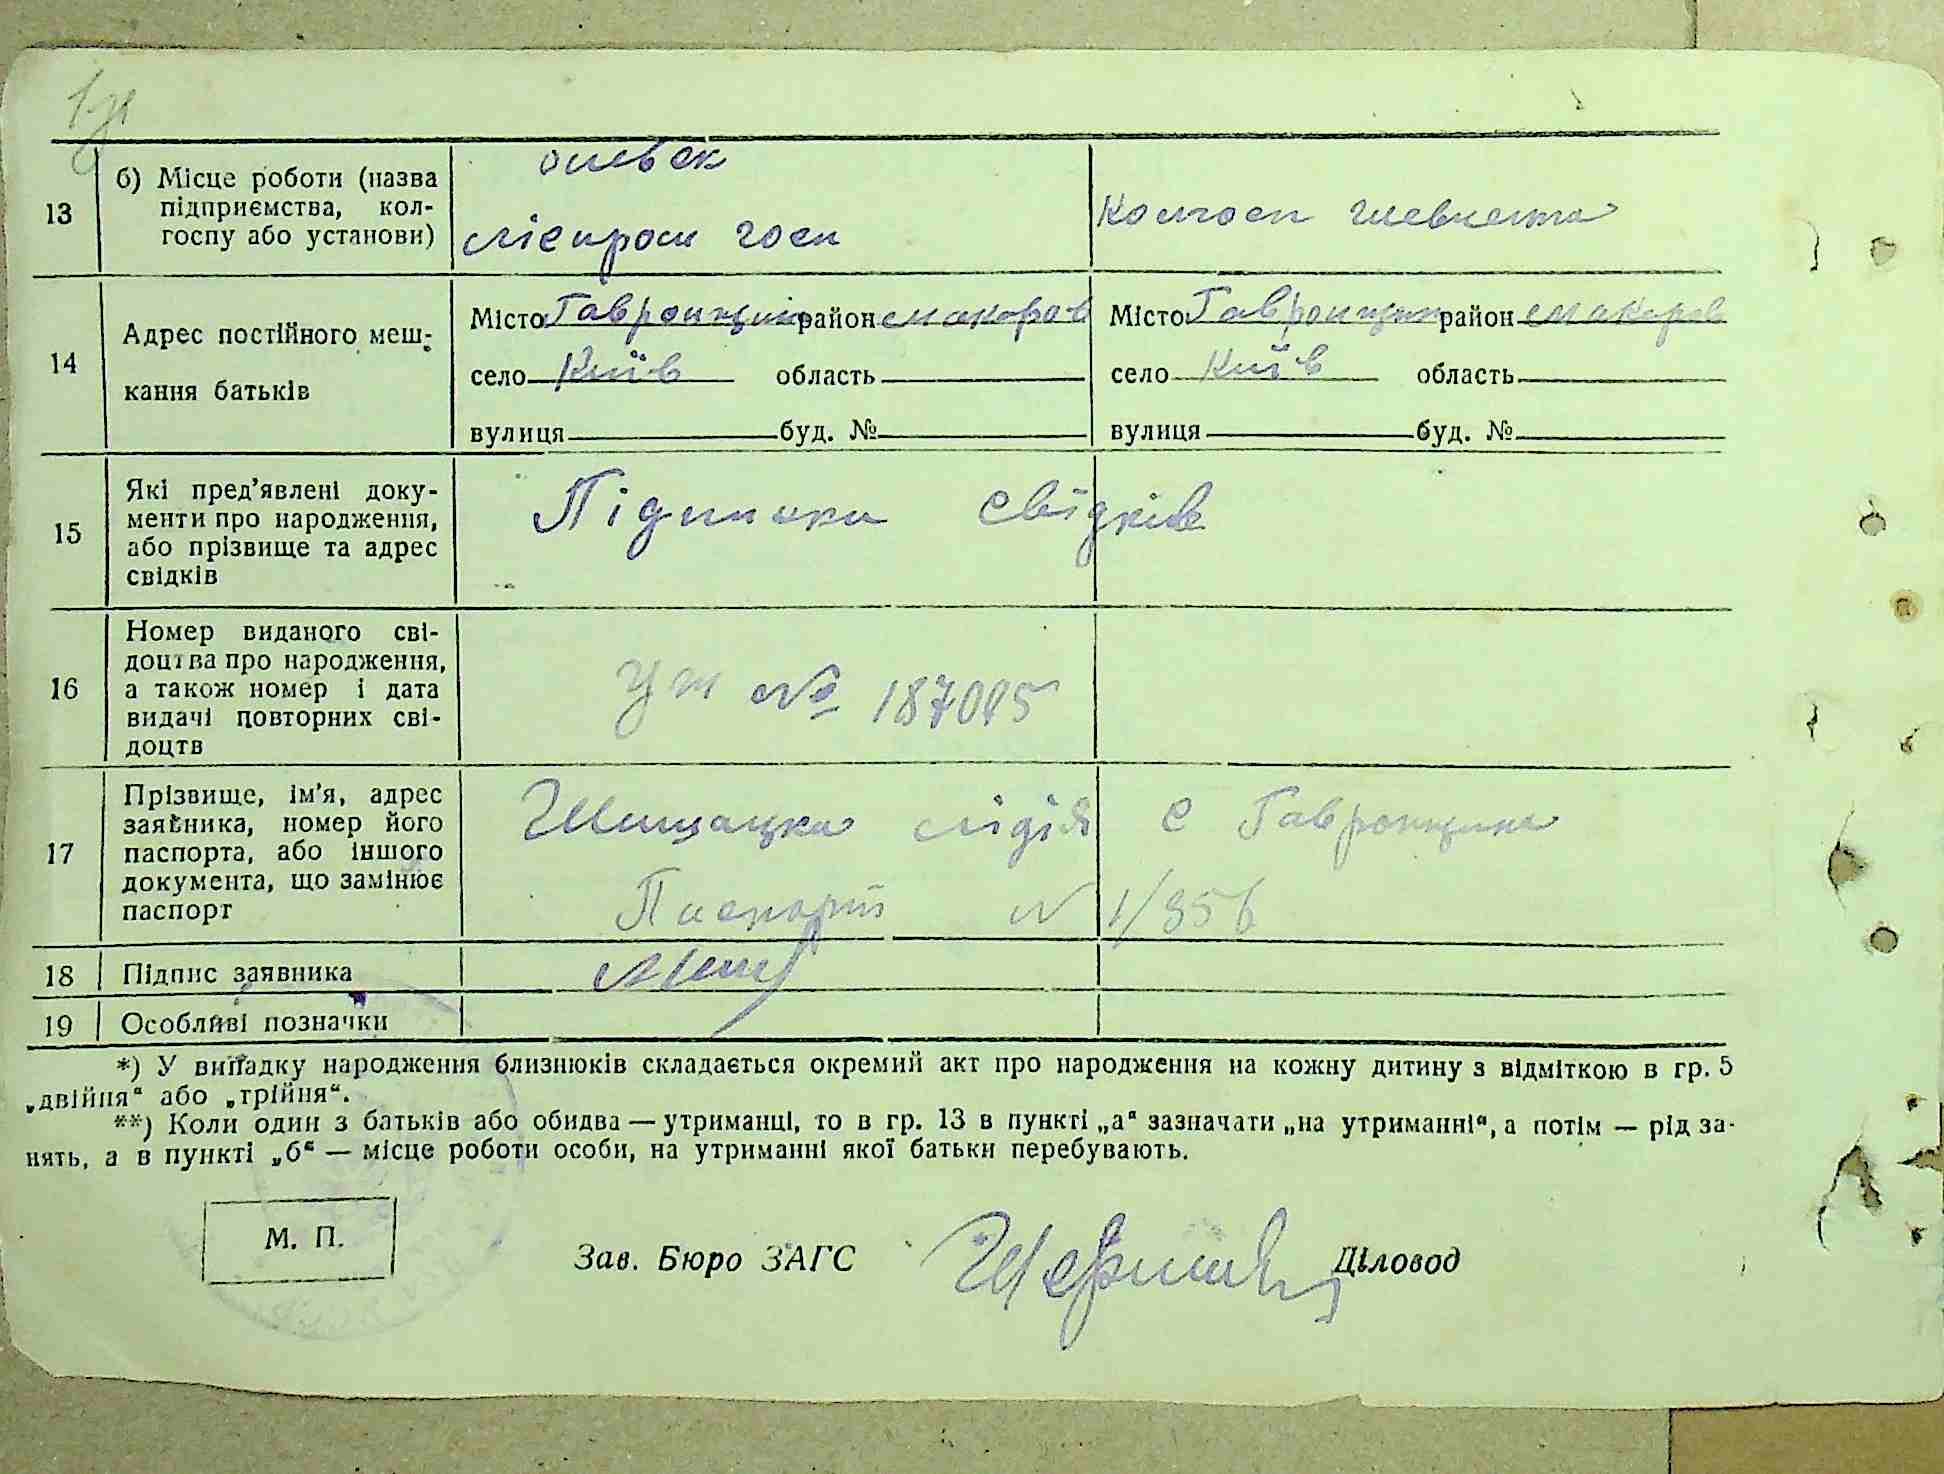 13
б) Місце роботи (назва
підприємства, кол-
госпу або установи)
ліспром госп
Колгосп Шевченка
14
Адрес постійного меш-
кання батьків
Місто Гавронщина район Макаров
село Київ область
вулиця буд. №
Місто Гавронщин район Макаров
село Київ область
вулиця буд. №
15
Які пред'явлені доку-
менти про народження,
або прізвище та адрес
свідків
Підписки свідків
16
Номер виданого сві-
доцтва про народження,
а також номер і дата
видачі повторних сві-
доцтв
№ 187015
17
Прізвище, ім'я, адрес
заявника, номер його
паспорта, або іншого
документа, що замінює
паспорт
Шищацка Лідія с Гавронщина
Паспорт N
18
Підпис заявника
19
Особливі позначки
*) У випадку народження близнюків складається окремий акт про народження на кожну дитину з відміткою в гр. 5
„двійня“ або „трійня“.
**) Коли один з батьків або обидва — утриманці, то в гр. 13 в пункті „а“ зазначати „на утриманні“, а потім — рід за-
нять, а в пункті „б“ — місце роботи особи, на утриманні якої батьки перебувають.
М. П.
Зав. Бюро ЗАГС
Діловод